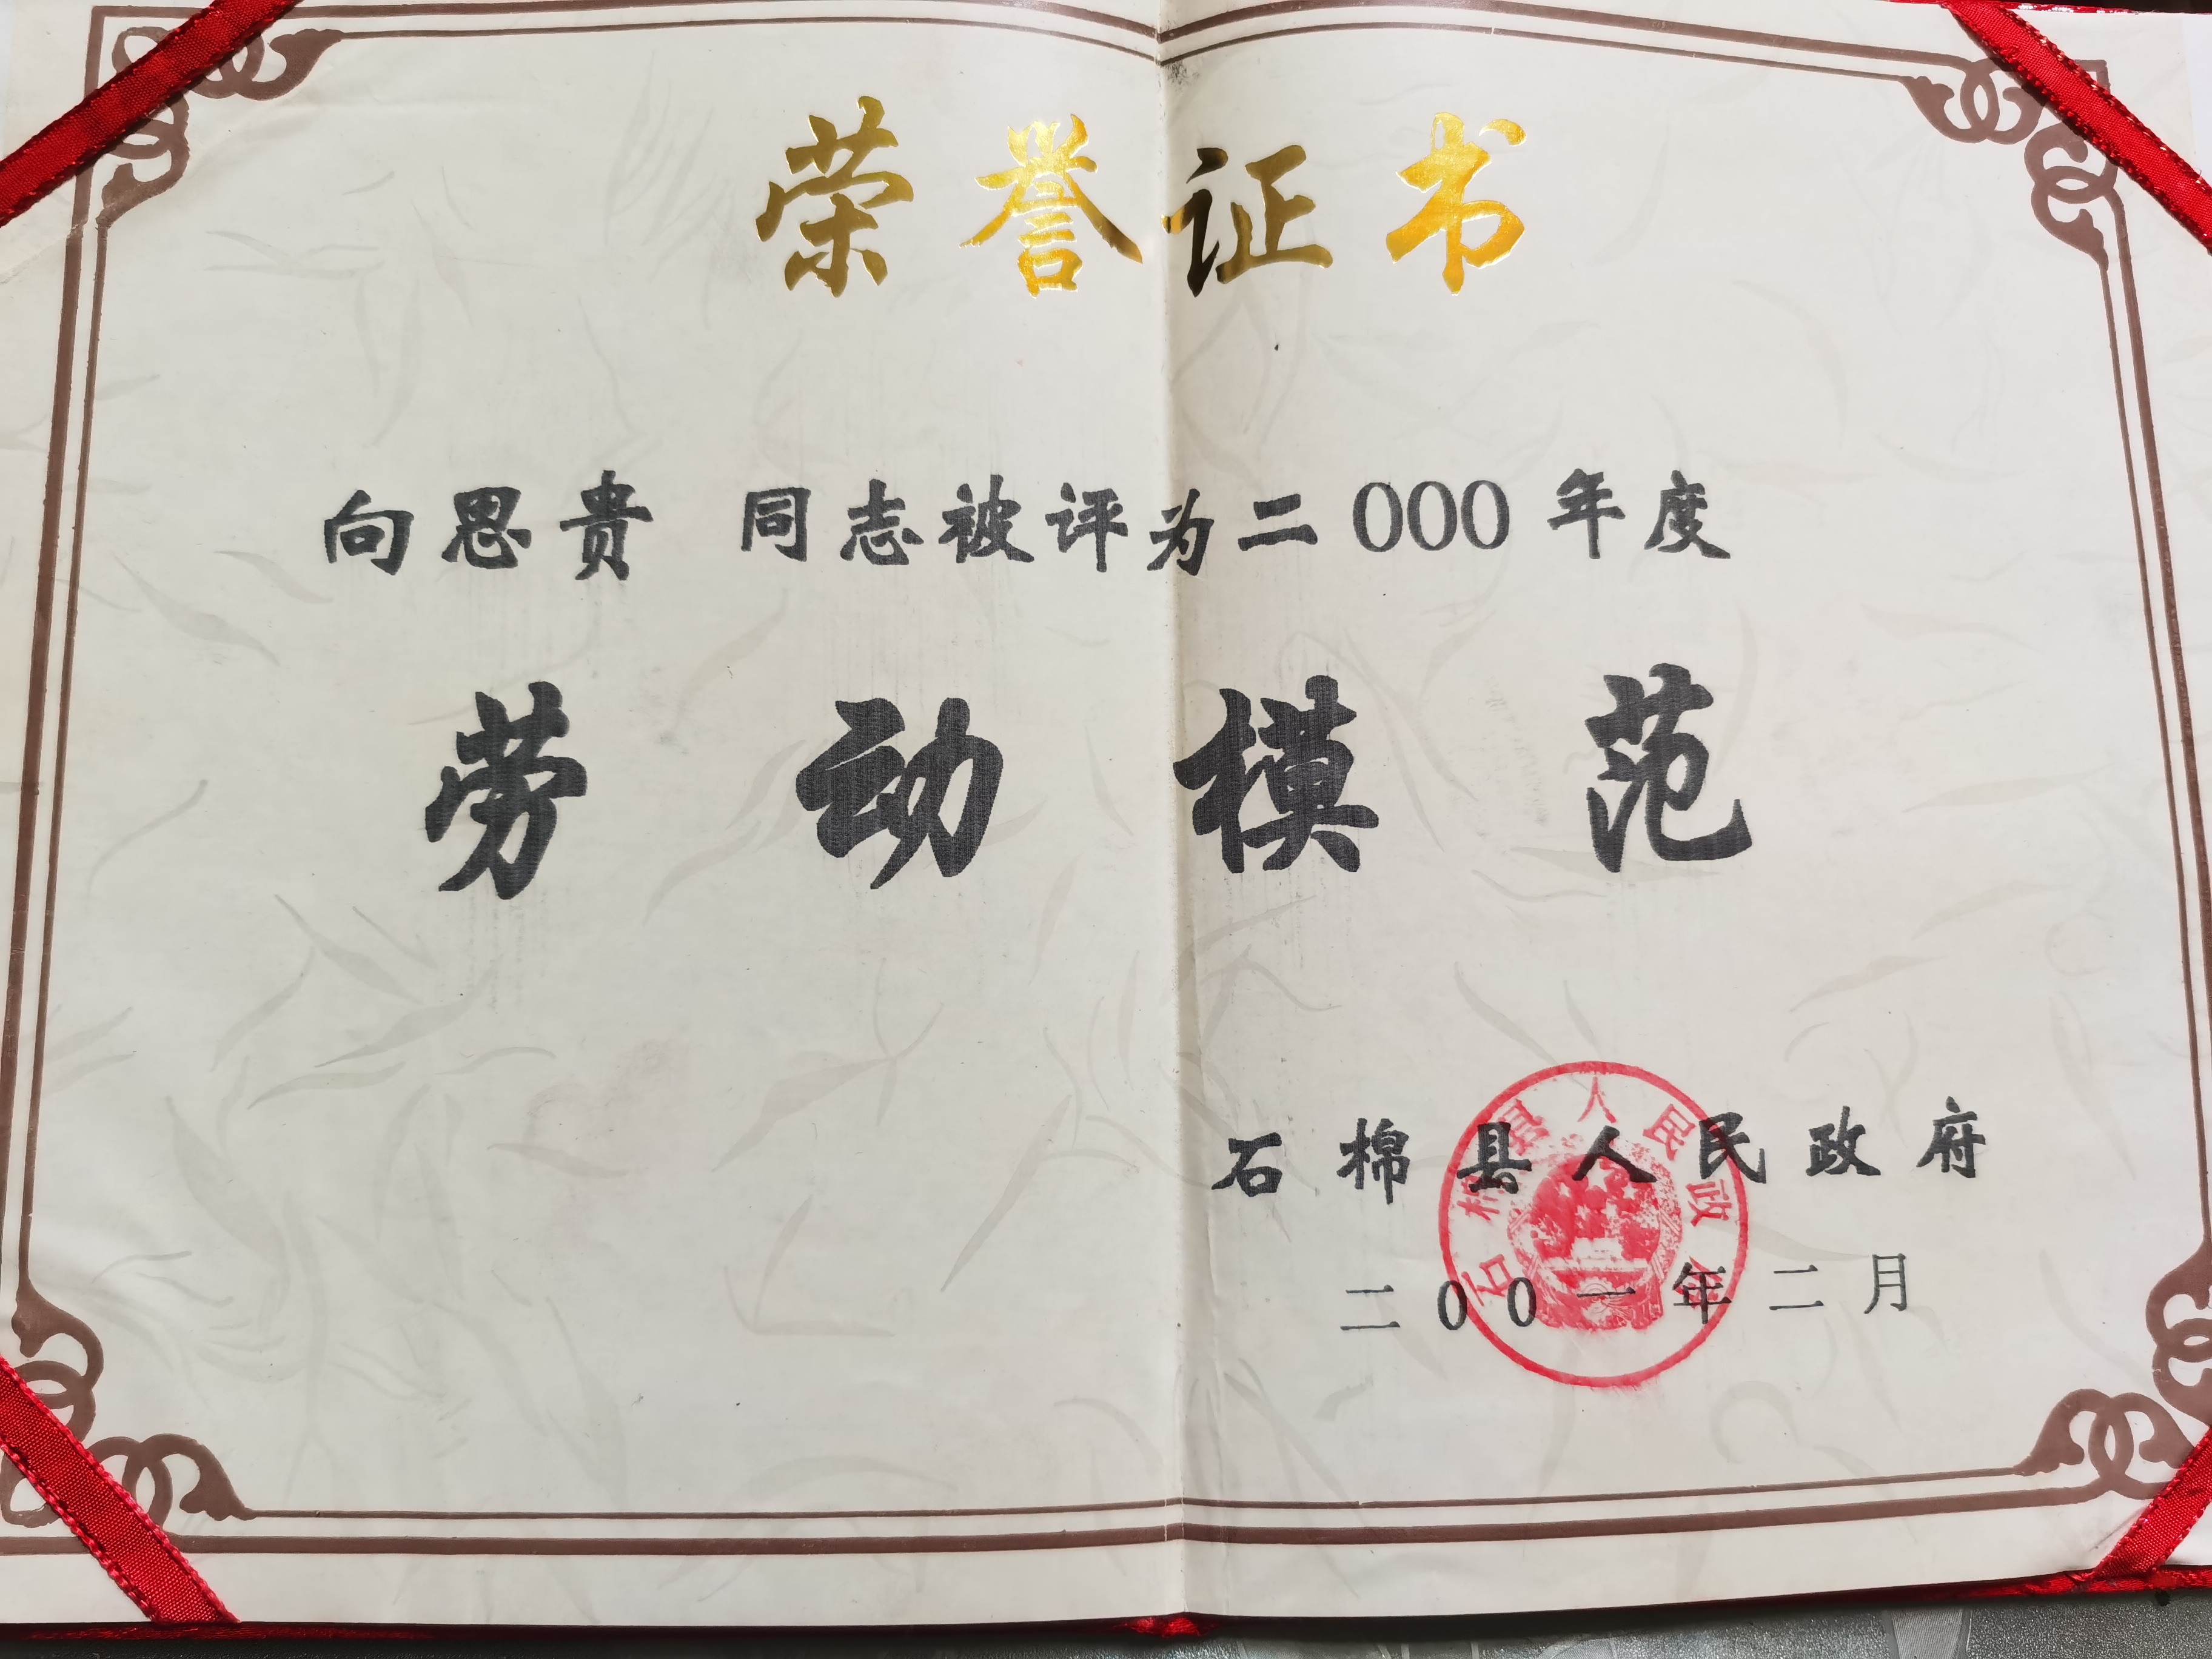 荣誉证书
向思贵 同志被评为二000年度
劳动模范
石棉县人民政府
石棉县人民政府
二00一年二月